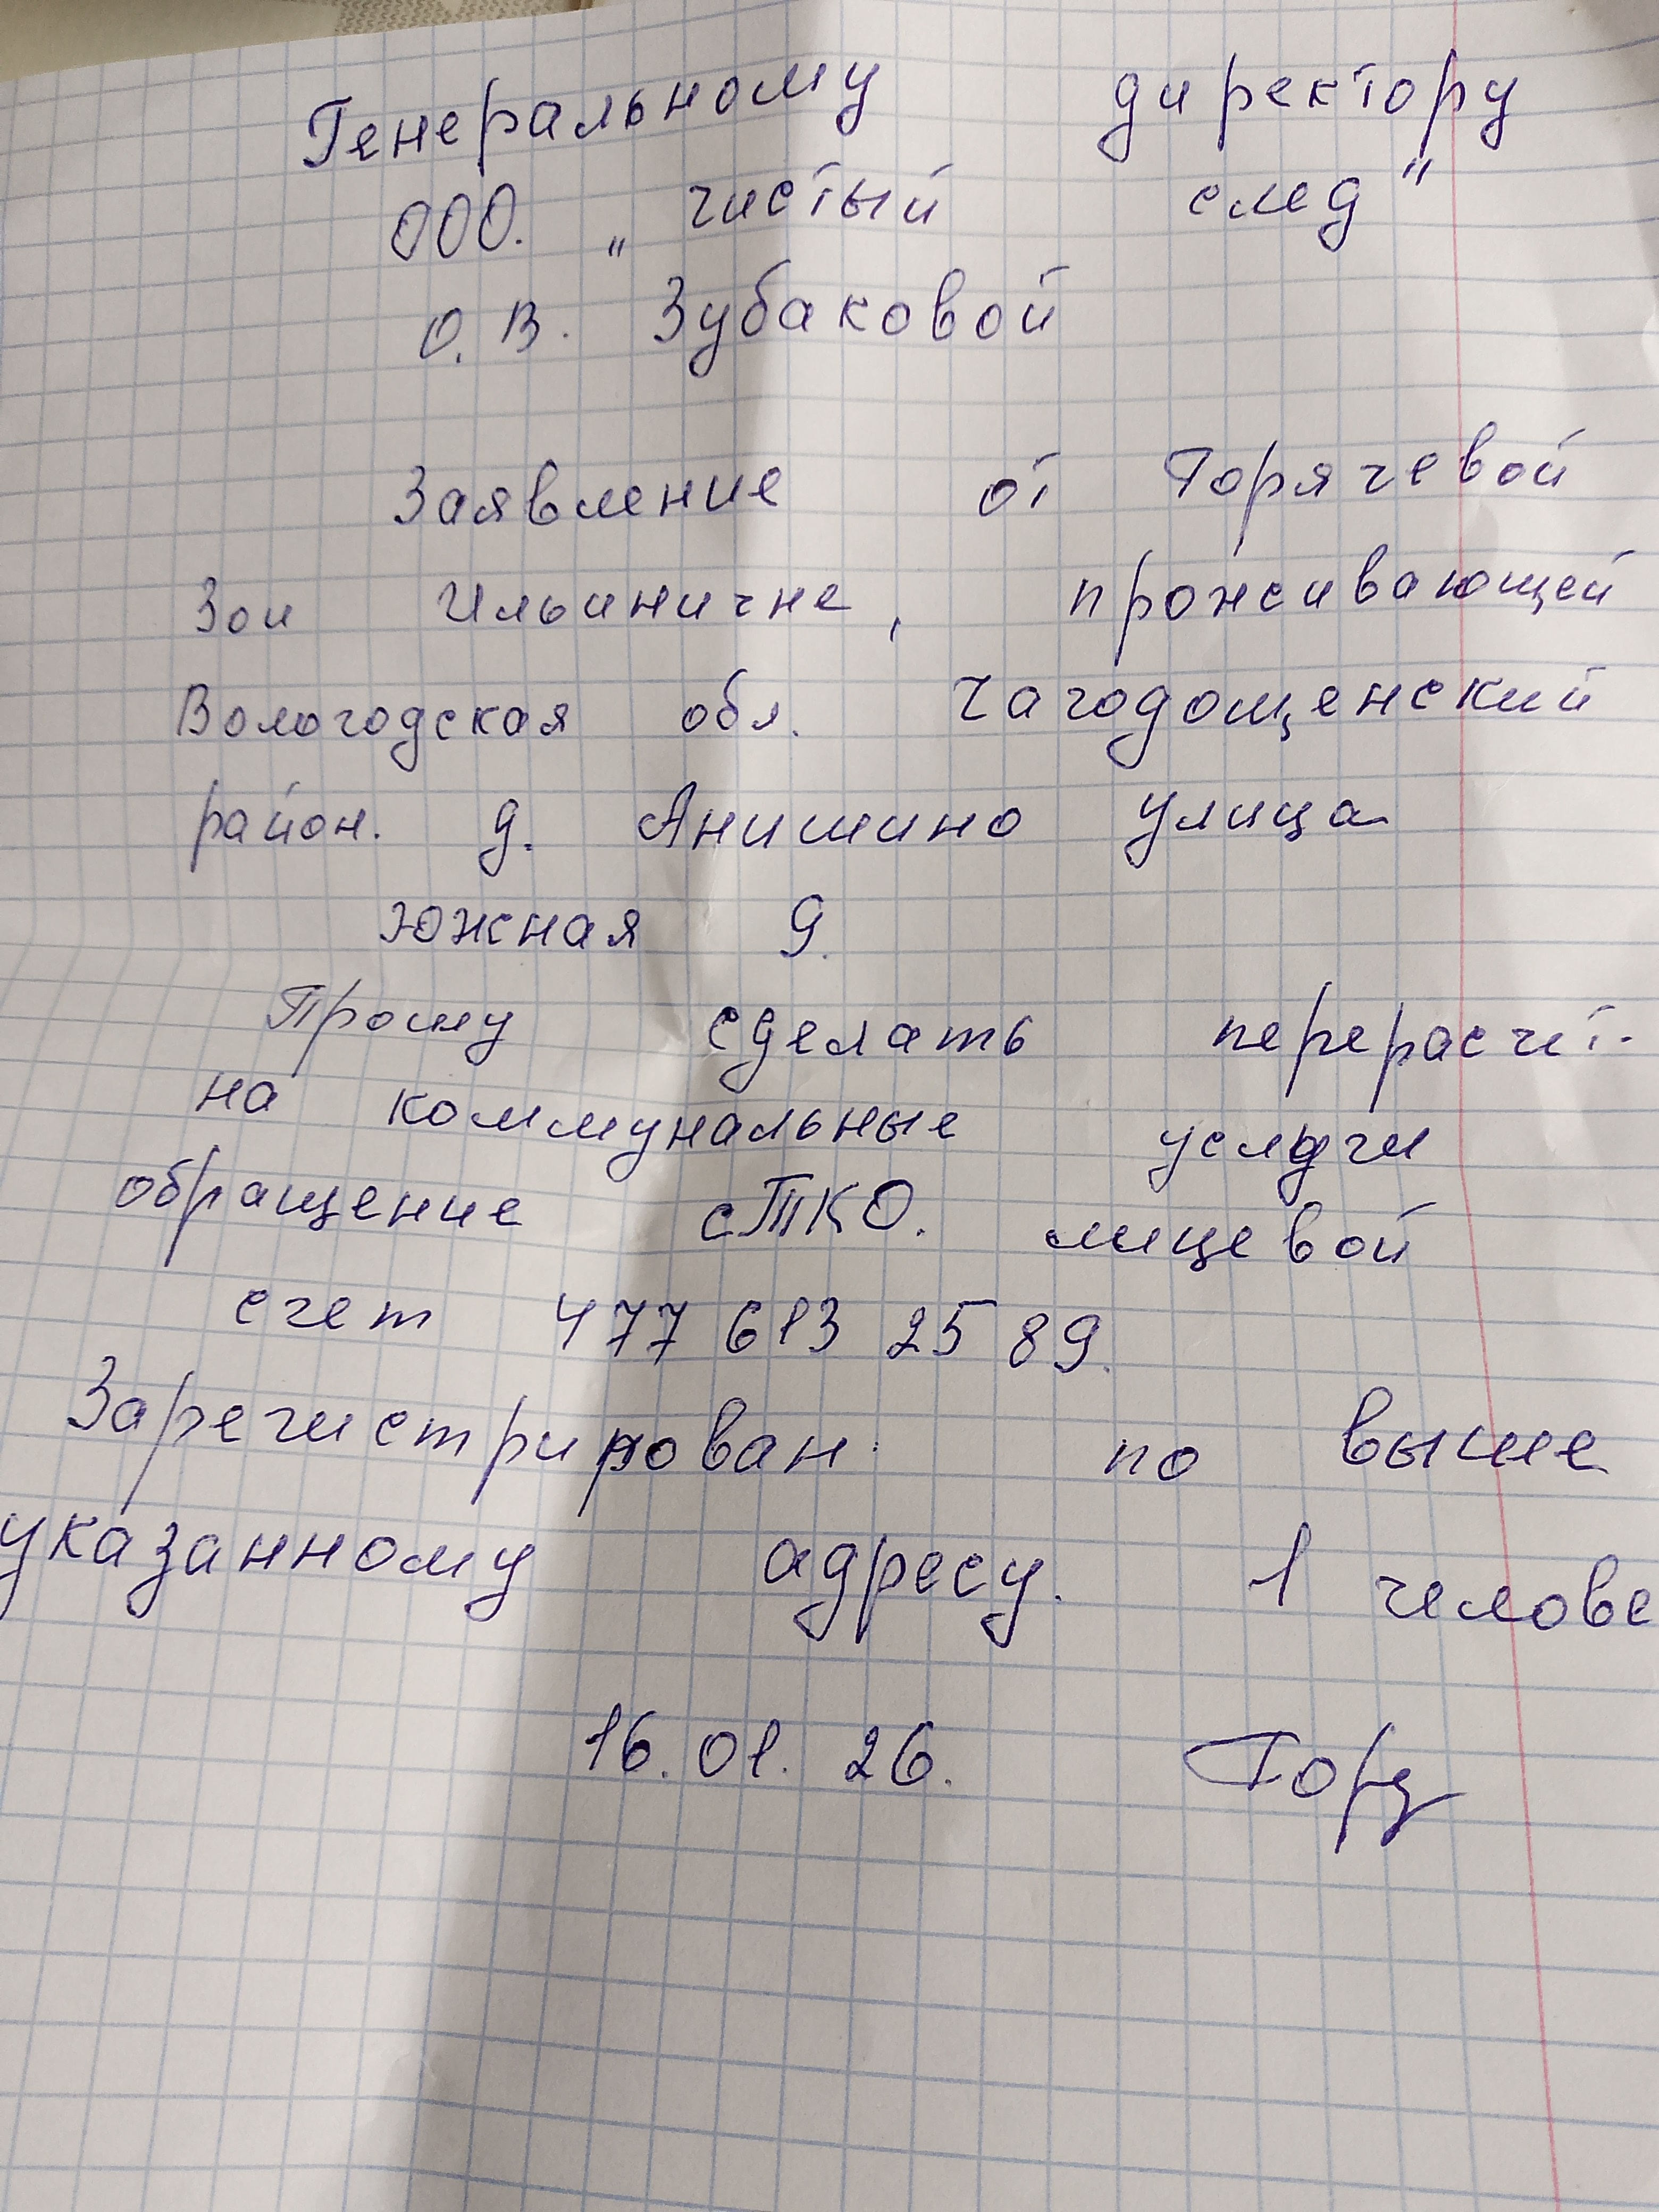 Генеральному директору
ООО. „чистый след"
О. В. Зубаковой
Заявление от Горячевой
Зои Ильиничне, проживающей
Вологодская обл. Чагодощенский
район. д. Анишино улица
Южная 9.
Прошу сделать перерасчет.
на коммунальные услуги
обращение с ТКО. лицевой
счет 477 613 25 89.
Зарегистрирован по выше
указанному адресу. 1 челове
16.01.26. Горя